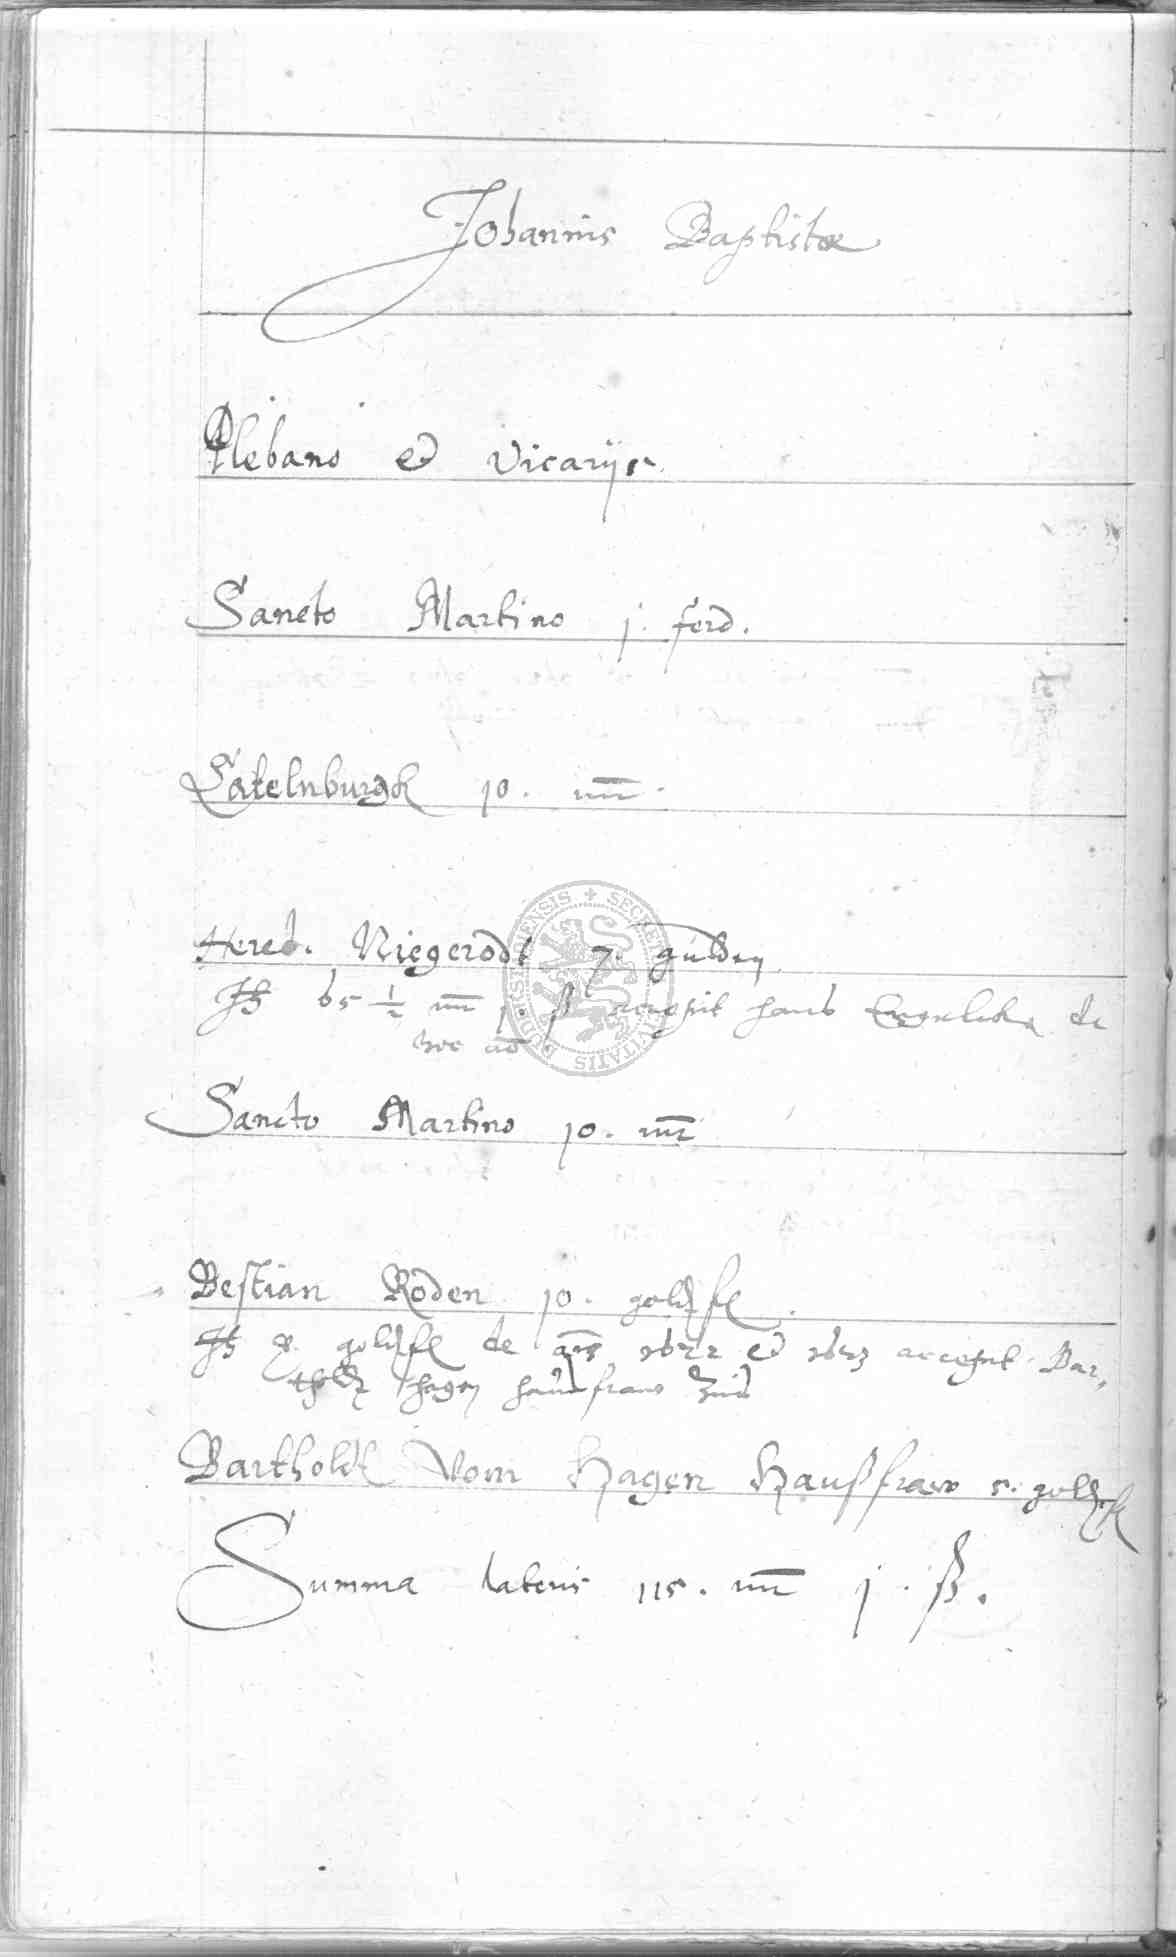 Johannis Baptistæ
Plebano et Vicarijs
Sancto Martino j. ferd.
Catelnburgk 10. mr
Hered. Niegerodt 7. gulden
65 1/2 mr j. ß accepit hans de
hoc ao.
Sancto Martino 10. mr
Bestian Roden 10. goldfl
goldfl de et accepit Bar,
tholdt hagen haußfraw
Bartholdt Vom Hagen Haußfraw 5. goldfl
Summa lateris 115. mr j. ß.
SECRETVM CIVITATIS DVDERSTADENSIS